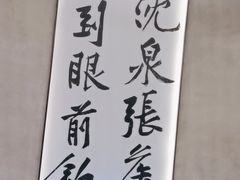 沈泉張
到眼前